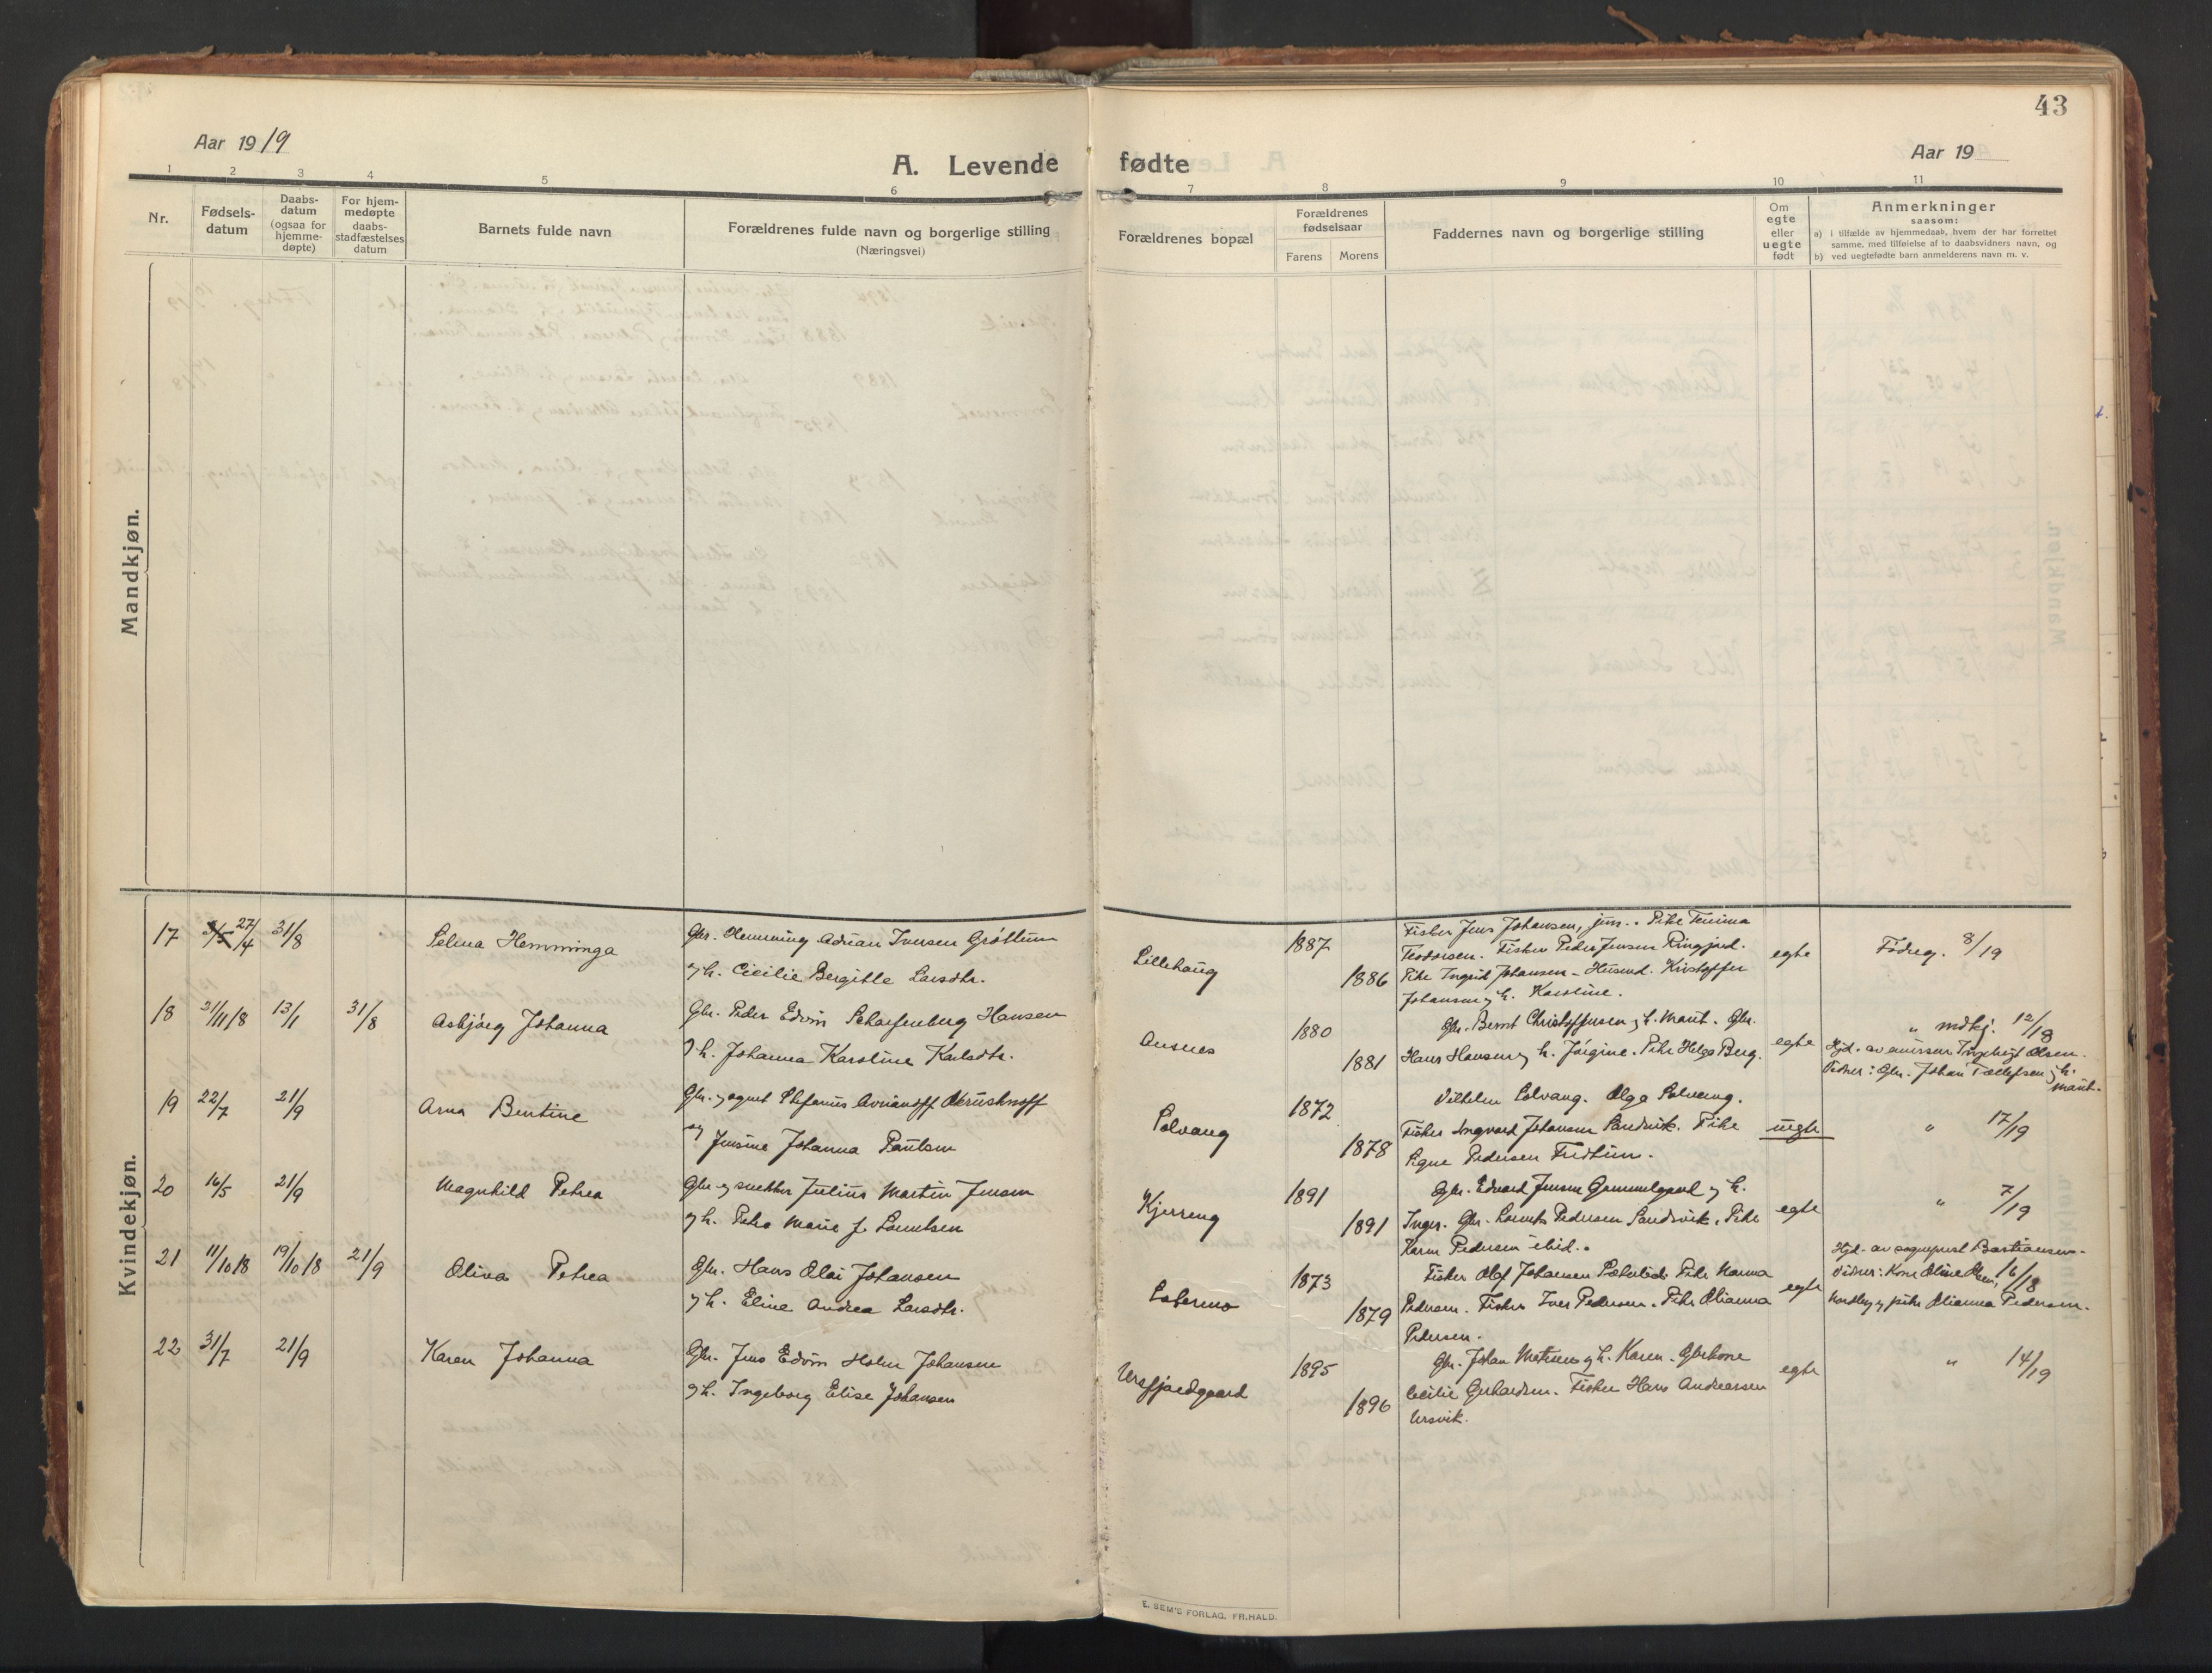 43
Aar 1919
A. Levende fødte
Aar 19
1 2 3 4 5 6 7 8 9 10 11
Nr.
Fødsels-
datum
Daabs-
datum
(ogsaa for
hjemme-
døpte)
For hjem-
medøpte
daabs-
stadfæstelses
datum
Barnets fulde navn
Forældrenes fulde navn og borgerlige stilling
(Næringsvei)
Forældrenes bopæl
Forældrenes
fødselsaar
Farens Morens
Faddernes navn og borgerlige stilling
Om
egte
eller
uegte
født
Anmerkninger
saasom:
a) i tilfælde av hjemmedaab, hvem der har forrettet
samme, med tilføielse af to daabsvidners navn, og
b) ved uegtefødte barn anmelderens navn m. v.
Mandkjøn.
Kvindekjøn.
17 27/4 31/8
Selma Hemminga
Gbr. Hemming Adrian Iversen Grøttum
og h. Cicilie Bergitte Larsdtr.
Lillehaug
1887
1886
Fisker Jens Johansen, jun.. Pike Tenima
Teodorsen. Fisker Peder Jensen Ringjord.
Pike Ingrid Johansen – Husmd. Kristoffer
Johansen og h. Karoline.
egte
Fødreg. 8/19
18 21/11 18 13/1 31/8
Asbjørg Johanna
Gbr. Peder Edvin Scharfenberg Hansen
og h. Johanna Karoline Karlsdtr.
Ausnes
1880
1881
Gbr. Bernt Christoffersen og h. Marit. Gbr.
Hans Hansen og h. Jørgine. Pike Helga Berg.
egte
" mdkj. 12/19
Hjd. av emissær Ingebrigt Olsen.
Vidner: Gbr. Johan Tollefsen og h.
Marit.
19 22/7 21/9
Arna Bentine
Gbr. og agent Stefanus
og Jensine Johanna Paulsen
Solvang
1872
1878
Vilhelm Solvang. Olga Solvang.
Fisker Ingvard Johansen Sandvik. Pike
Signe Pedersen Fredtun.
uegte
" 17/19
20 16/5 21/9
Magnhild Petrea
Gbr. og snekker Julius Martin Jensen
og h. Petra Marie f. Lorentsen
Kjerreng
1891
1891
Gbr. Edvard Jensen Gammelgaard og h.
Inger. Gbr. Lorents Pedersen Sandsvik. Pike
Karen Pedersen ibid..
egte
" 7/19
21 11/10 18 19/10 18 21/9
Oliva Petrea
Gbr. Hans Olai Johansen
og h. Eline Andrea Larsdtr.
1873
1879
Fisker Olaf Johansen Pike Hanna
Pedersen. Fisker Iver Pedersen. Pike Olianna
Pedersen.
egte
Hjd. av sogneprest Bastiansen.
Vidner: Kone Oline Olsen, 16/18
Nordberg og pike Olianna Pedersen.
22 31/7 21/9
Karen Johanna
Gbr. Jens Edvin Holm Johansen
og h. Ingeborg Elise Johansen
Ursfjordgaard
1895
1896
Gbr. Johan Meteus og h. Karen. Gbrkone
Cecilie Gerhardsen. Fisker Hans Andreassen
Ursvik.
egte
" 14/19
E. SEM'S FORLAG. FR.HALD.